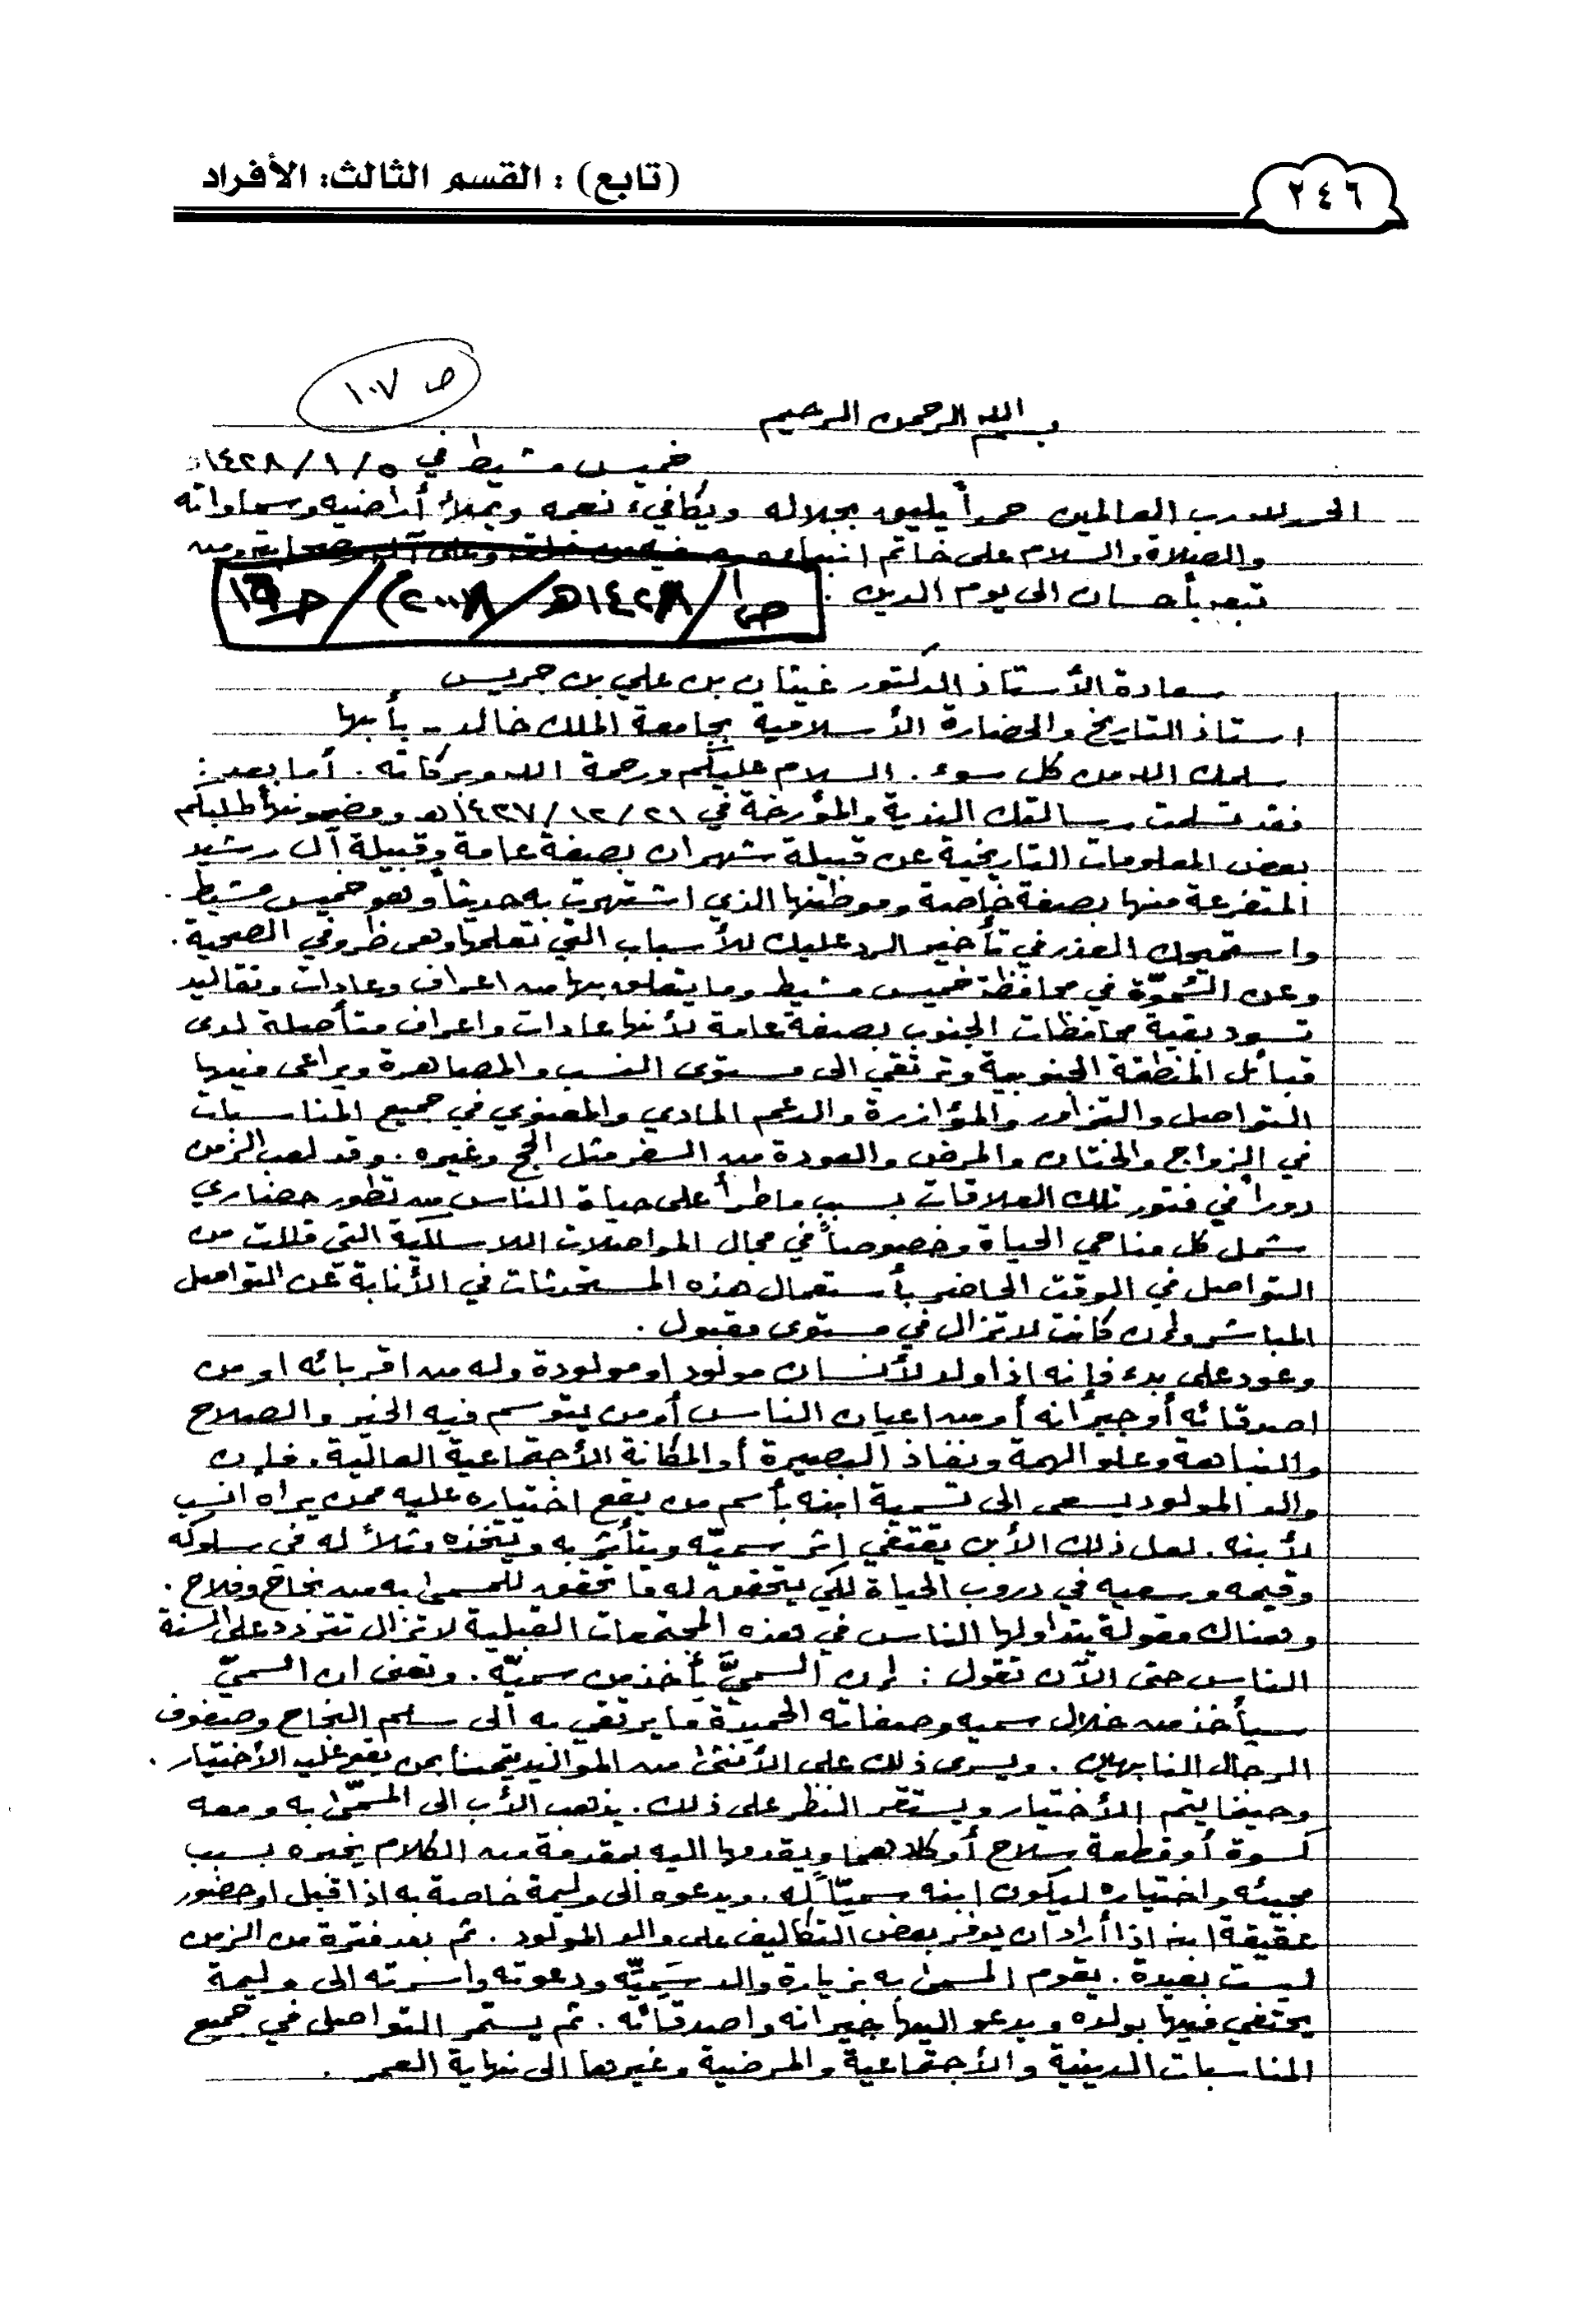 ٢٤٦
(تابع) : القسم الثالث: الأفراد
ص ١٠٧
بسم الله الرحمن الرحيم
خميس مشيط في ١/٥/ ١٤٢٨هـ
الحمد لله رب العالمين حمداً يليق بجلاله ويكافيء نعمه ويملأ أراضيه وسماواته
والصلاة والسلام على خاتم انبياءه وصفيه من خلقه وعلى آله وصحابته ومن
تبعه بأحسان الى يوم الدين .
سعادة الأستاذ الدكتور غيثان بن علي بن جريس
استاذ التاريخ والحضارة الأسلامية بجامعة الملك خالد - بأبها
سلمك الله من كل سوء . السلام عليكم ورحمة الله وبركاته . أما بعد :
فقد تسلمت رسالتك الندية والمؤرخة في ٢١/ ١٢/ ١٤٢٧هـ ومضمونها طلبكم
بعض المعلومات التاريخية عن قبيلة شهران بصفة عامة وقبيلة آل رشيد
المتفرعة منها بصفة خاصة وموطنها الذي اشتهرت به حديثاً وهو خميس مشيط .
واستميحك العذر في تأخير الرد عليك للأسباب التي تعلمها وهي ظروفي الصحية .
وعن السُّموّة في محافظة خميس مشيط وما يتعلق بها من اعراف وعادات وتقاليد
تسود بقية محافظات الجنوب بصفة عامة لأنها عادات واعراف متأصلة لدى
قبائل المنطقة الجنوبية وترتقي الى مستوى النسب والمصاهرة ويراعى فيها
التواصل والتزاور والمؤازرة والدعم المادي والمعنوي في جميع المناسبات
في الزواج والختان والمرض والعودة من السفر مثل الحج وغيره . وقد لعب الزمن
دوراً في فتور تلك العلاقات بسبب ما طرأ على حياة الناس من تطور حضاري
شمل كل مناحي الحياة وخصوصاً في مجال المواصلات اللاسلكية التي قللت من
التواصل في الوقت الحاضر بأستعمال هذه المستحدثات في الأنابة عن التواصل
المباشر وإن كانت لا تزال في مستوى مقبول .
وعود على بدء فإنه اذا ولد لأنسان مولود او مولودة وله من اقربائه او من
اصدقائه أو جيرانه أو من اعيان الناس أو من يتوسم فيه الخير والصلاح
والنباهة وعلو الهمة ونفاذ البصيرة أو المكانة الأجتماعية العالية . فإن
والد المولود يسعى الى تسمية ابنه بأسم من يقع اختياره عليه ممن يراه انسب
لأبنه . لعل ذلك الأبن يقتفي إثر سميّه ويتأثر به ويتخذه مثلاً له في سلوكه
وقيمه وسعيه في دروب الحياة لكي يتحقق له ما تحقق للمسمى به من نجاح وفلاح .
وهناك مقولة يتداولها الناس في هذه المجتمعات القبلية لا تزال تتردد على السنة
الناس حتى الآن تقول : إن السميَّ يأخذ من سميّه . وتعني ان السميّ
سيأخذ من خلال سميه وصفاته الحميدة ما يرتقي به الى سلم النجاح وصفوف
الرجال النابهين . ويسري ذلك على الأنثى من المواليد تيمناً بمن يقع عليه الأختيار .
وحينما يتم الأختيار ويستقر النظر على ذلك . يذهب الأب الى المسمّى به ومعه
كسوة أو قطعة سلاح أو كلاهما ويقدمها اليه بمقدمة من الكلام يخبره بسبب
مجيئه واختياره ليكون ابنه سميّاً له . ويدعوه الى وليمة خاصة به اذا قبل او حضور
عقيقة ابنه اذا أراد ان يوفر بعض التكاليف على والد المولود . ثم بعد فترة من الزمن
ليست بعيدة . يقوم المسمى به بزيارة والد سَمِيّه ودعوته واسرته الى وليمة
يحتفي فيها بولده ويدعو اليها جيرانه واصدقائه . ثم يستمر التواصل في جميع
المناسبات الدينية والأجتماعية والمرضية وغيرها الى نهاية العمر .